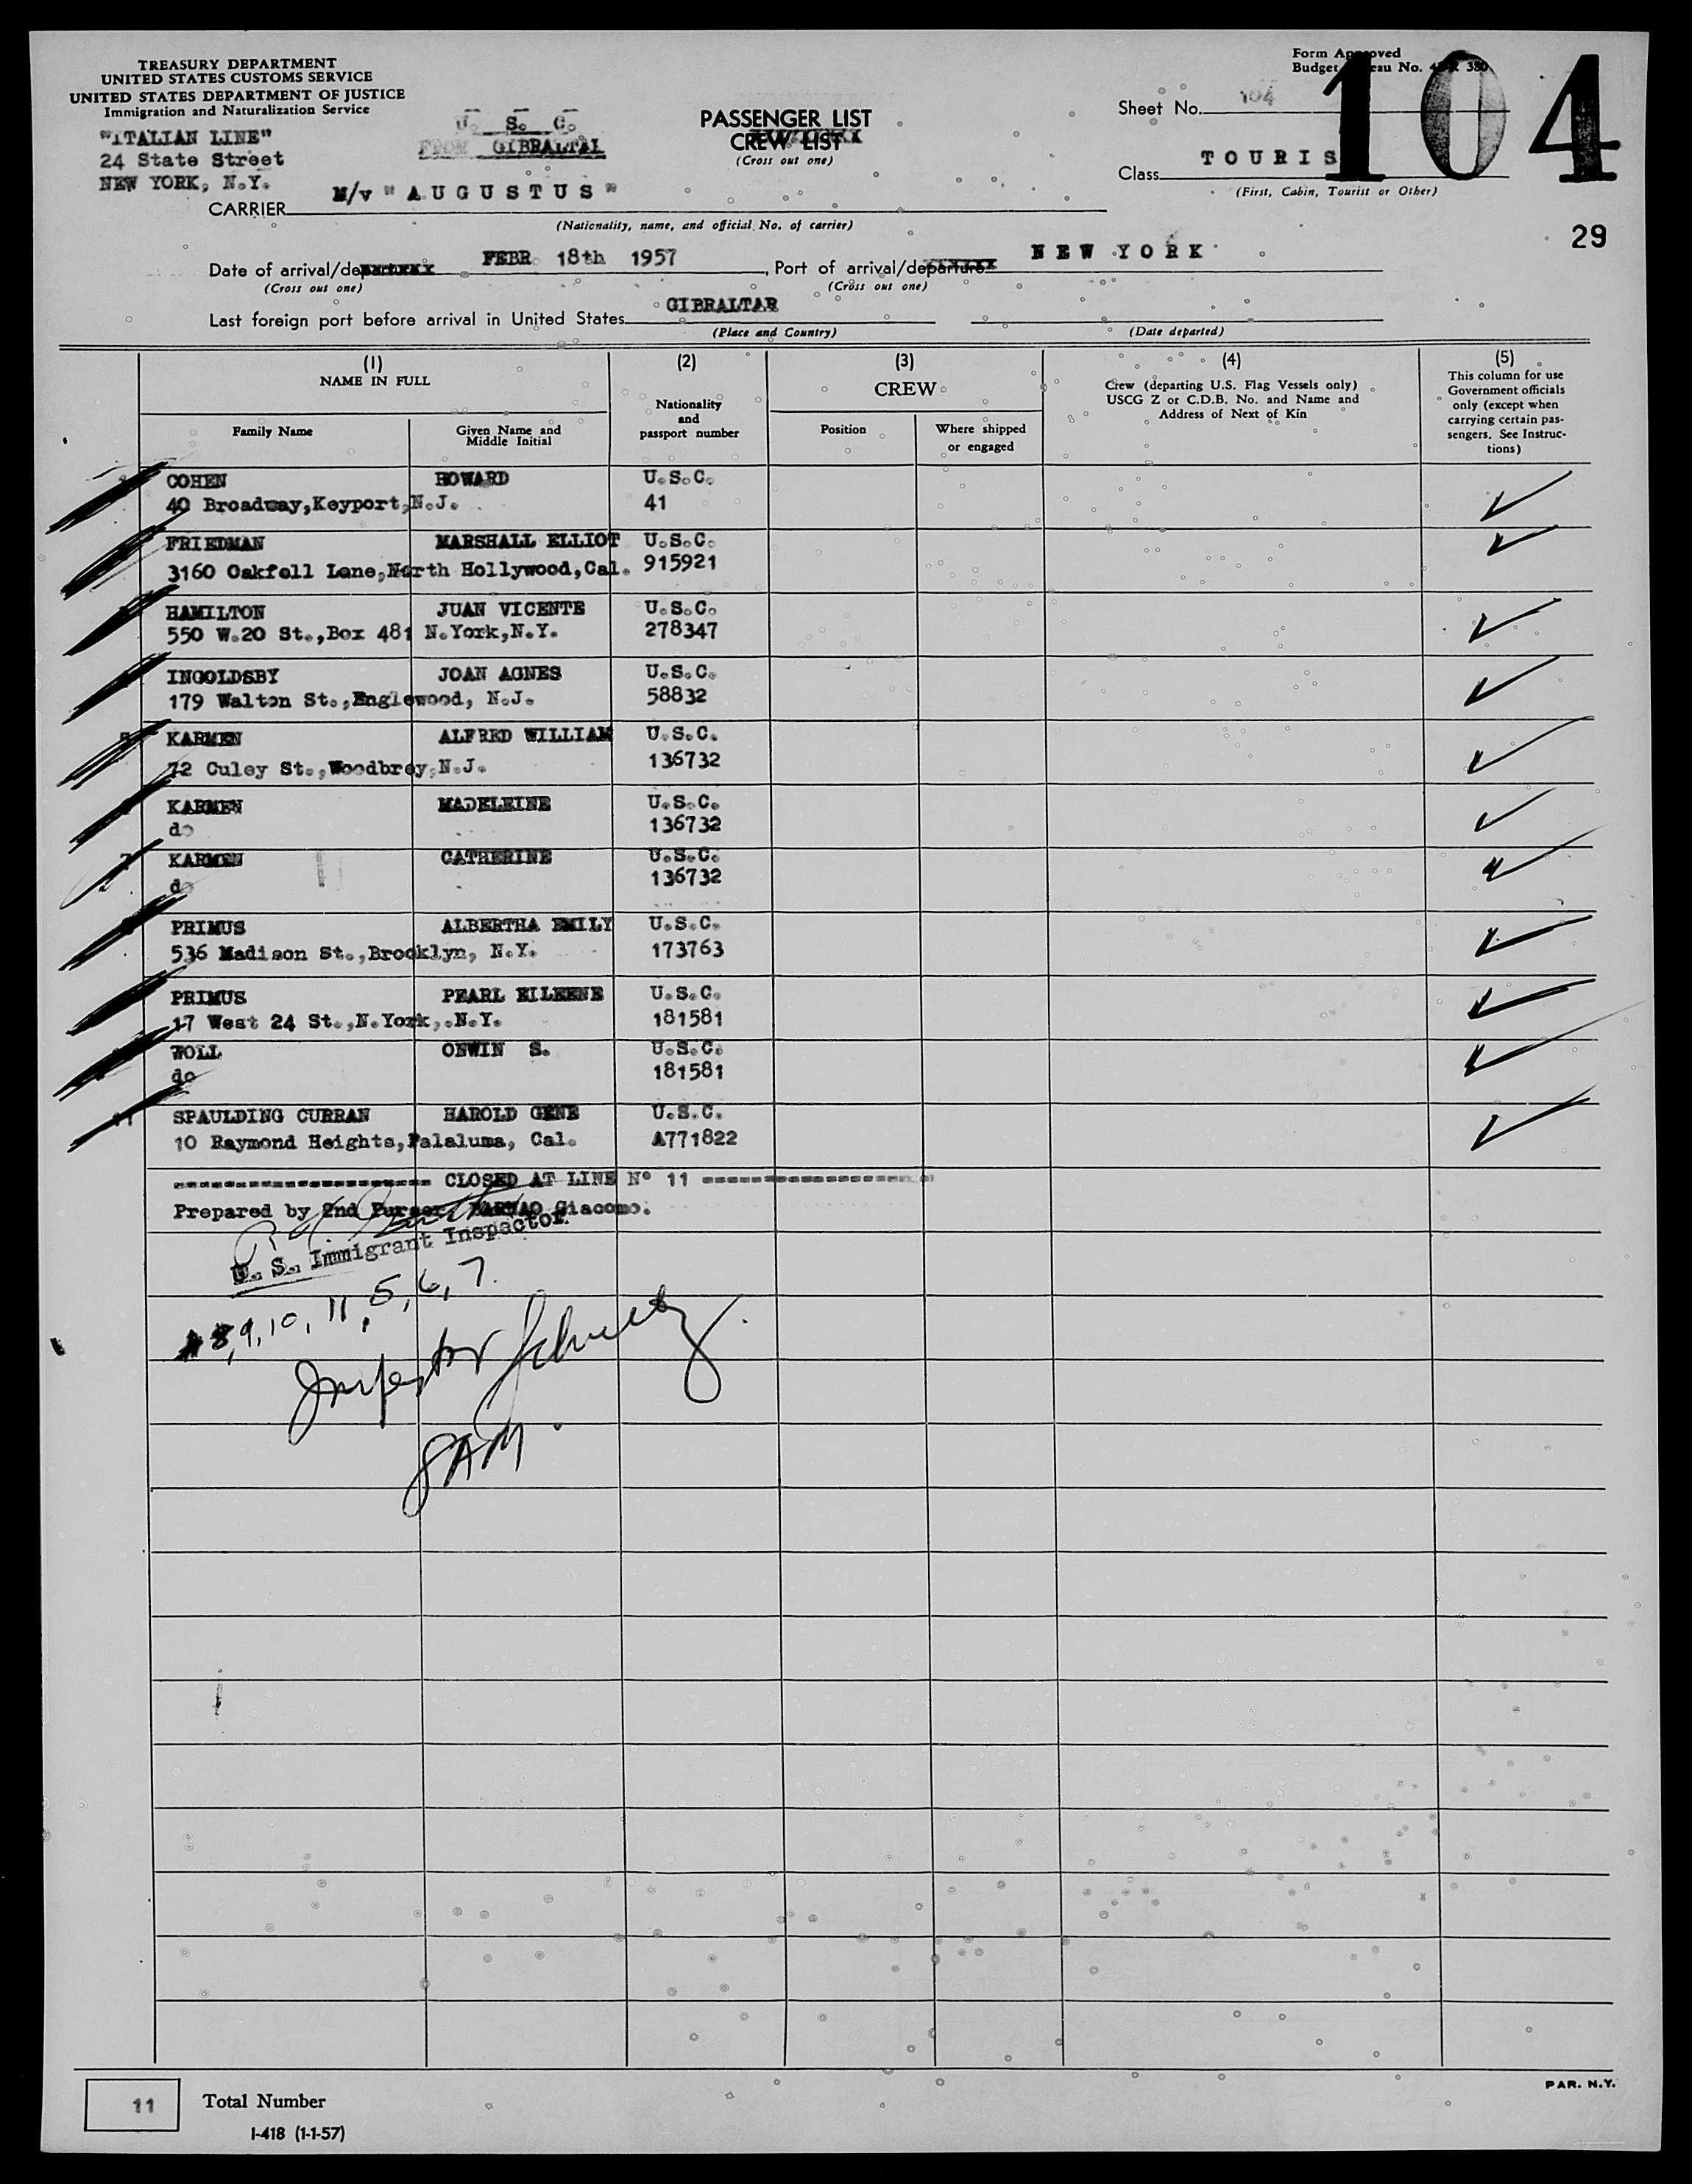 TREASURY DEPARTMENT
UNITED STATES CUSTOMS SERVICE
UNITED STATES DEPARTMENT OF JUSTICE
Immigration and Naturalization Service
"ITALIAN LINE"
24 State Street
NEW YORK, N.Y.
U. S. C.
FROM GIBRALTAR
PASSENGER LIST
CREW LIST
(Cross out one)
Form Approved
Budget Bureau No.
Sheet No. 104
104
Class TOURIS
(First, Cabin, Tourist or Other)
29
CARRIER M/v "AUGUSTUS"
(Nationality, name, and official No. of carrier)
Date of arrival/departure FEBR 18th 1957, Port of arrival/departure NEW YORK
(Cross out one) (Cross out one)
Last foreign port before arrival in United States GIBRALTAR
(Place and Country) (Date departed)
(1) (2) (3) (4) (5)
NAME IN FULL
Family Name
Given Name and Middle Initial
Nationality and passport number
CREW
Position
Where shipped or engaged
Crew (departing U.S. Flag Vessels only)
USCG Z or C.D.B. No. and Name and
Address of Next of Kin
This column for use
Government officials
only (except when
carrying certain pas-
sengers. See Instruc-
tions)
COHEN HOWARD U.S.C.
40 Broadway,Keyport,N.J. 41
FRIEDMAN MARSHALL ELLIOT U.S.C.
3160 Oakfell Lane,North Hollywood,Cal. 915921
HAMILTON JUAN VICENTE U.S.C.
550 W.20 St.,Box 481 N.York,N.Y. 278347
INGOLDSBY JOAN AGNES U.S.C.
179 Walton St.,Englewood, N.J. 58832
5 KARMEN ALFRED WILLIAM U.S.C.
72 Culey St.,Woodbrey,N.J. 136732
KARMEN MADELEINE U.S.C.
do 136732
7 KARMEN CATHERINE U.S.C.
do 136732
PRIMUS ALBERTHA EMILY U.S.C.
536 Madison St.,Brooklyn, N.Y. 173763
PRIMUS PEARL EILEENE U.S.C.
17 West 24 St.,N.York,.N.Y. 181581
WOLL ONWIN S. U.S.C.
do 181581
11 SPAULDING CURRAN HAROLD GENE U.S.C.
10 Raymond Heights,Palaluma, Cal. A771822
CLOSED AT LINE Nº 11
Prepared by 2nd Purser Giacomo.
U. S. Immigrant Inspector
8, 9, 10, 11, 5, 6, 7.
Inspector
11 Total Number
I-418 (1-1-57)
PAR. N.Y.